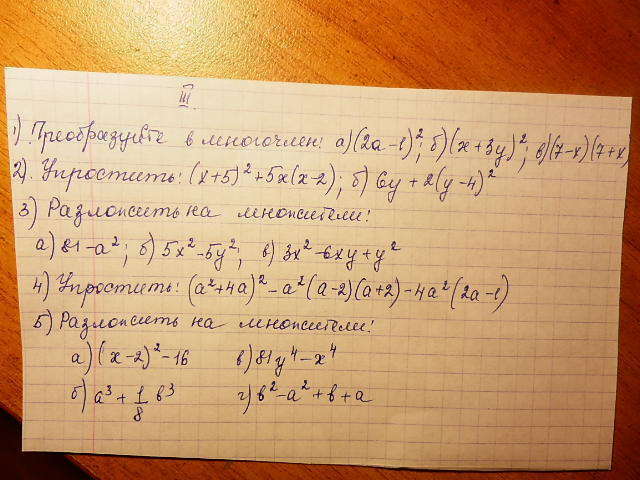 III.
1). Преобразуйте в многочлен: а)(2a-1)²; б)(x+3y)²; в)(7-x)(7+x)
2). Упростить: (x+5)²+5x(x-2); б) 6y+2(y-4)²
3) Разложить на множители:
а) 81-a²; б) 5x²-5y²; в) 3x²-6xy+y²
4) Упростить: (a²+4a)²-a²(a-2)(a+2)-4a²(2a-1)
5) Разложить на множители:
а) (x-2)²-16 в) 81y⁴-x⁴
б) a³+1/8 b³ г) b²-a²+b+a